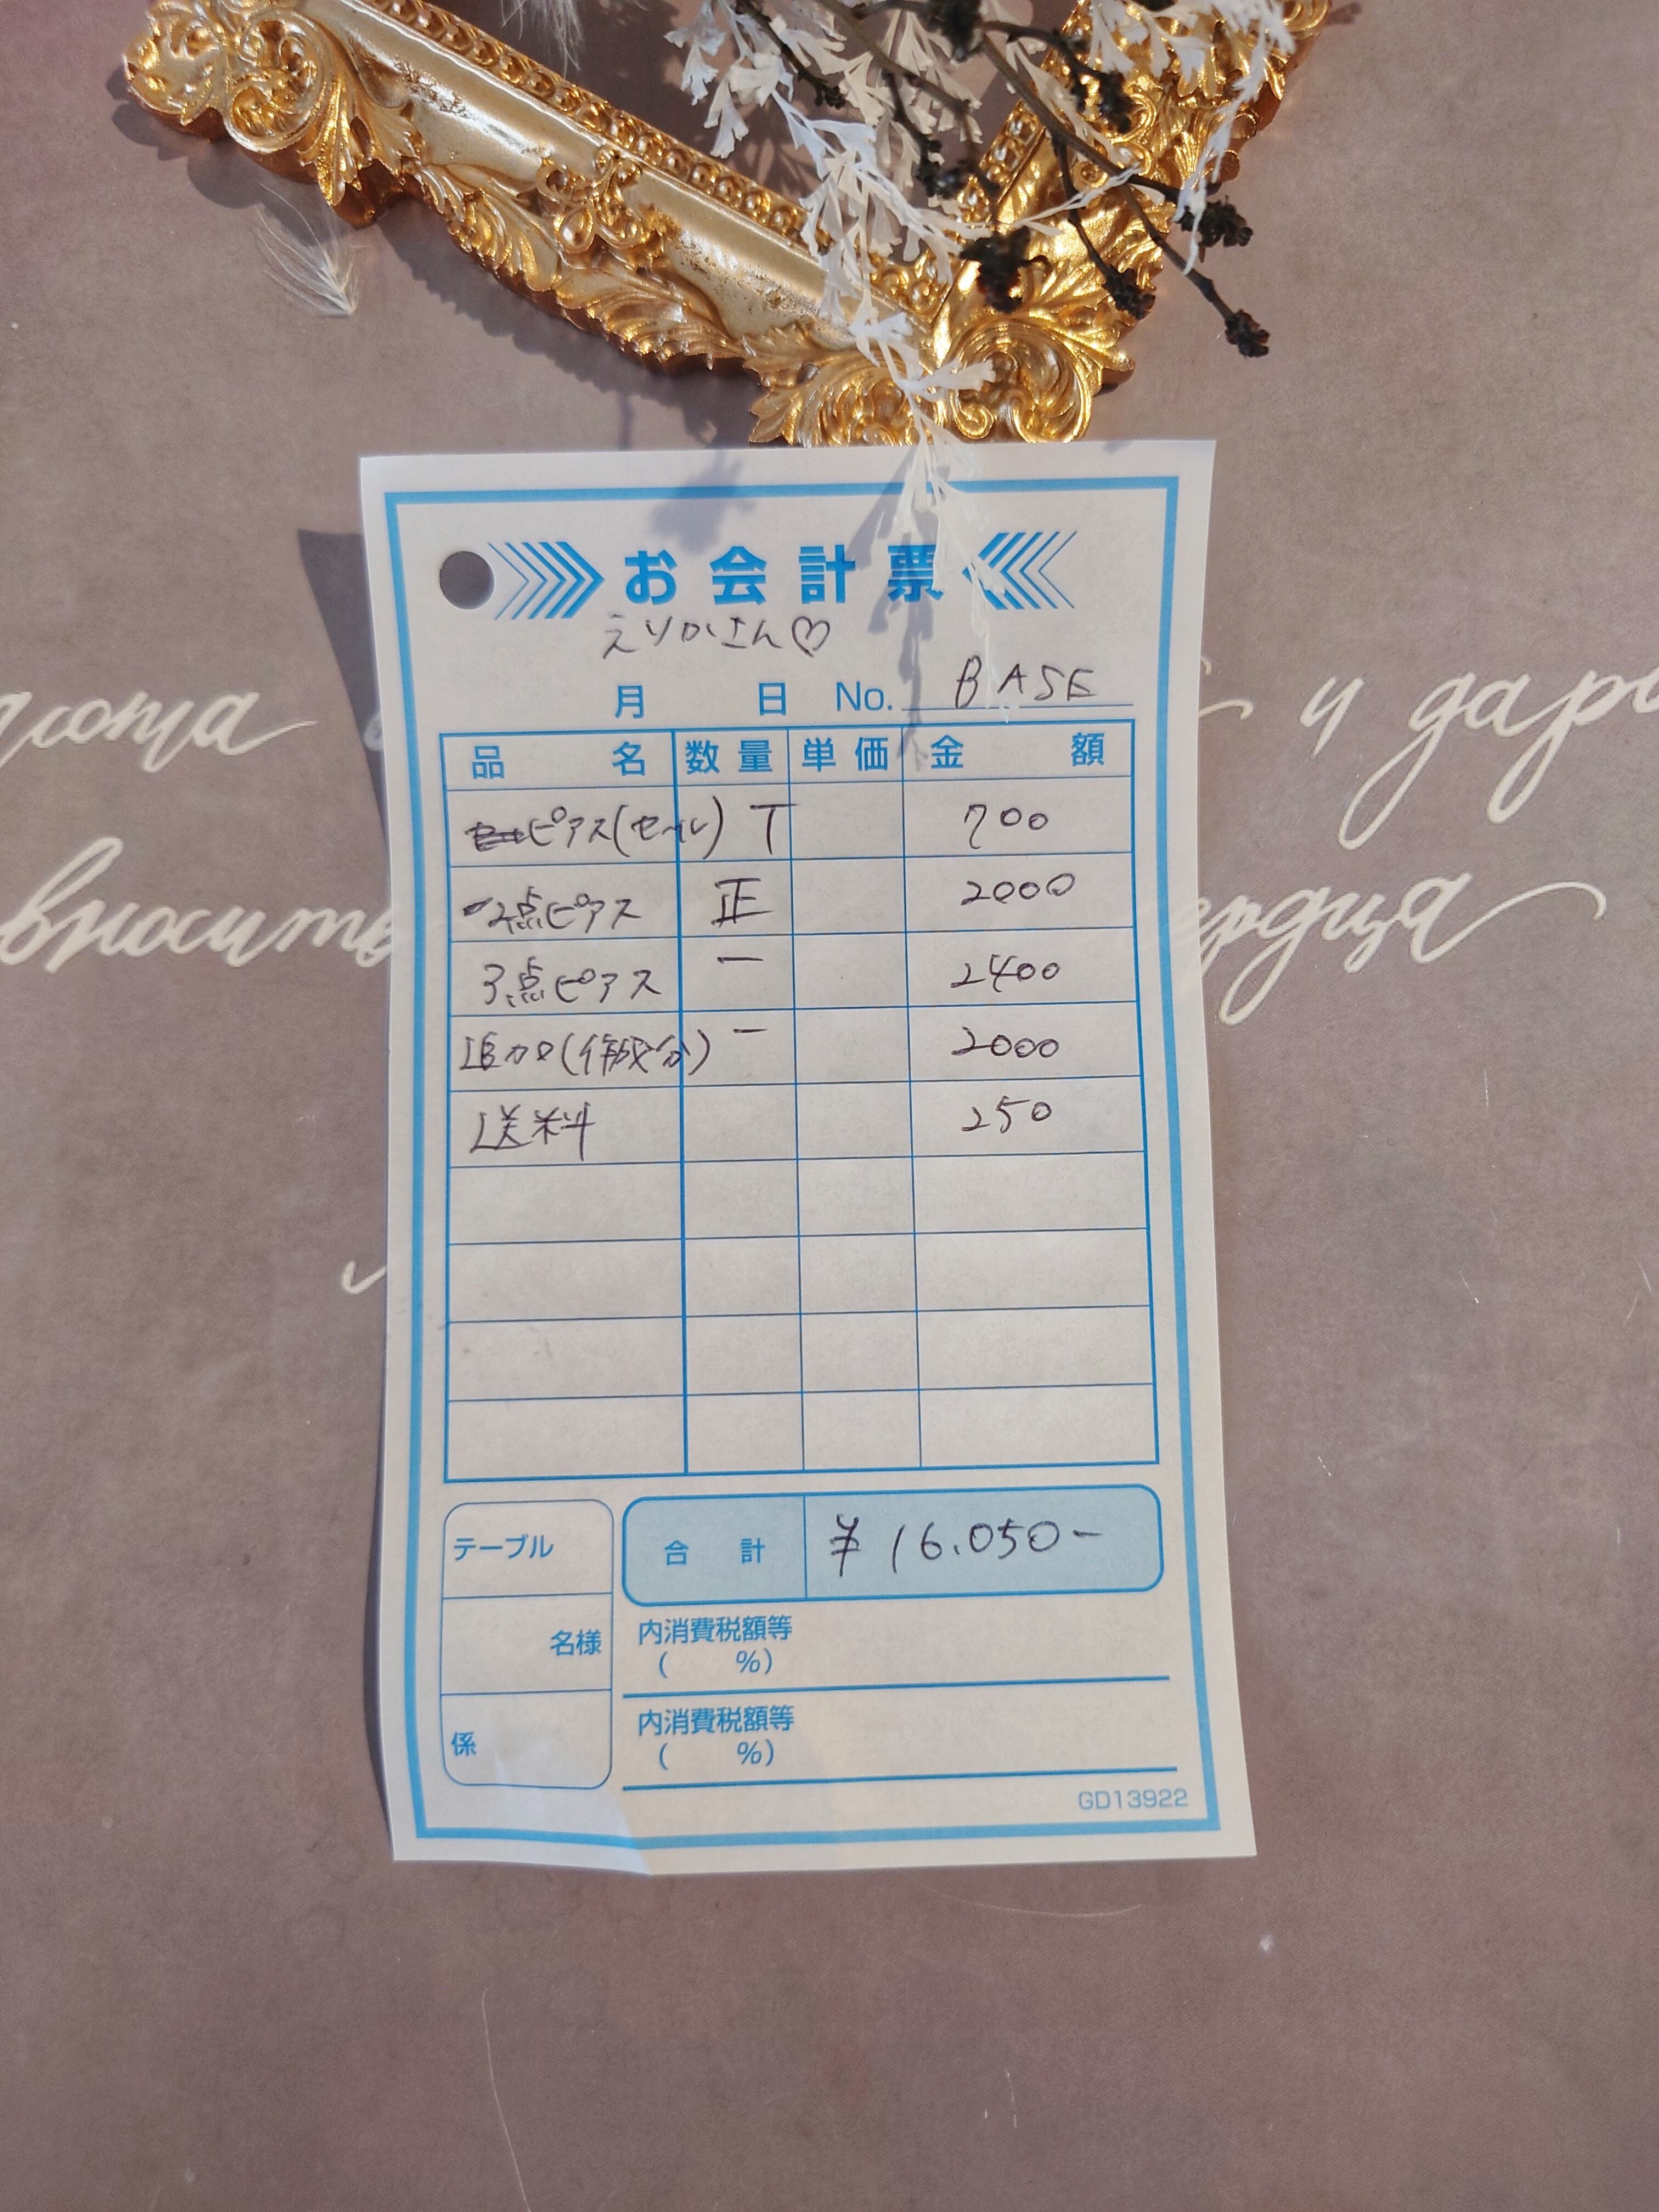 お会計票
えりかさん♡
月 日 No. BASE
品名 数量 単価 金額
ピアス(セール) T 700
2点ピアス 正 2000
3点ピアス 一 2400
追加(作成分) 一 2000
送料 250
テーブル
合計 ¥16.050-
名様
内消費税額等
( %)
係
内消費税額等
( %)
GD13922
и
вносить